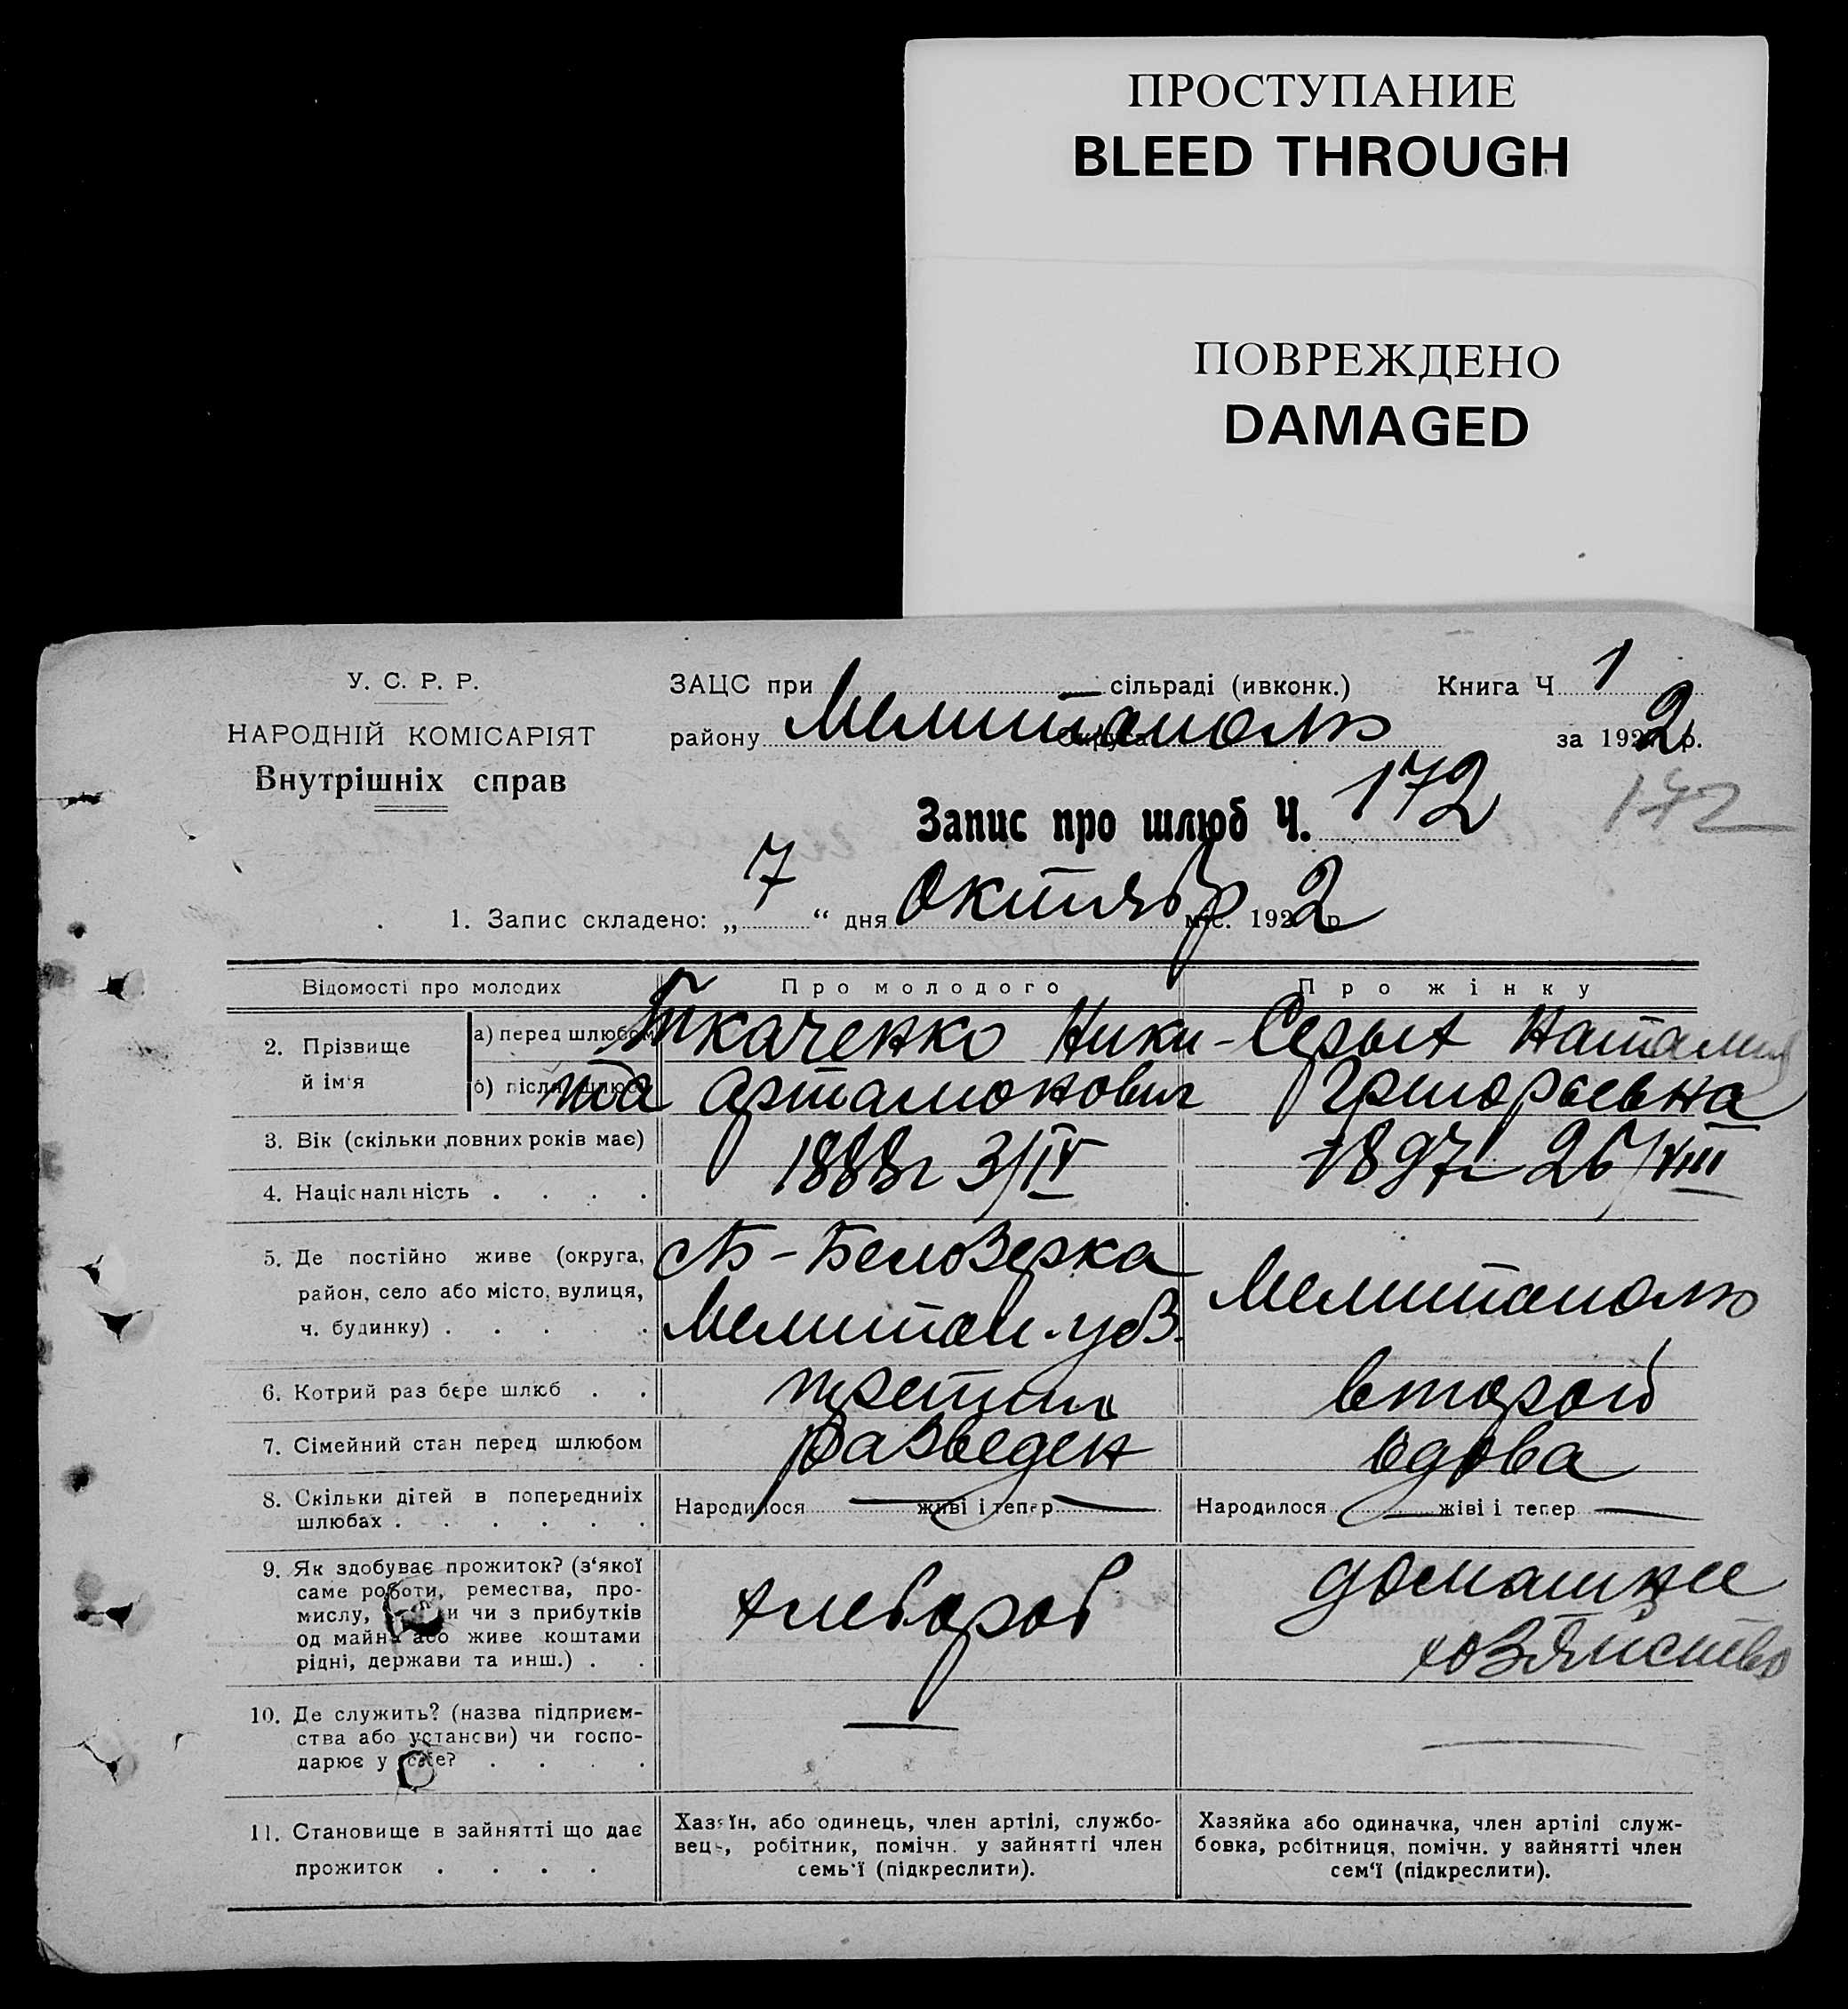 ПРОСТУПАНИЕ
BLEED THROUGH
ПОВРЕЖДЕНО
DAMAGED
У. С. Р. Р.
НАРОДНІЙ КОМІСАРІЯТ
Внутрішніх справ
ЗАЦС при — сільраді (ивконк.) Книга Ч 1
району Мелитополь округа за 1922 р.
Запис про шлюб Ч. 172 172
1. Запис складено: „7“ дня Октябр міс. 1922 р.
Відомості про молодих Про молодого Про жінку
2. Прізвище й ім'я а) перед шлюбом Ткаченко Ники- Серых Наталия
б) після шлюбу та Артамонович Григорьевна
3. Вік (скільки повних років має) 1888г 3/IV 1897г 26/VIII
4. Національність . . . .
5. Де постійно живе (округа, Б-Белозерка
район, село або місто, вулиця, Мелитополь
ч. будинку) . . . . . Мелитоп. уез.
6. Котрий раз бере шлюб . . третий второй
7. Сімейний стан перед шлюбом разведен вдова
8. Скільки дітей в попередніх Народилося — живі і тепер — Народилося — жіві і тепер —
шлюбах . . . . . .
9. Як здобуває прожиток? (з‘якої домашнее
саме роботи, ремества, про-
мислу, и чи з прибутків хлебороб
од майна або живе коштами хозяйство
рідні, держави та инш.) . .
10. Де служить? (назва підприєм-
ства або установи) чи госпо- — —
дарює у себе? . . . .
11. Становище в зайнятті що дає Хазяїн, або одинець, член артілі, службо- Хазяйка або одиначка, член артілі служ-
вець, робітник, помічн. у зайнятті член бовка, робітниця, помічн. у зайнятті член
прожиток . . . . семь‘ї (підкреслити). сем‘ї (підкреслити).